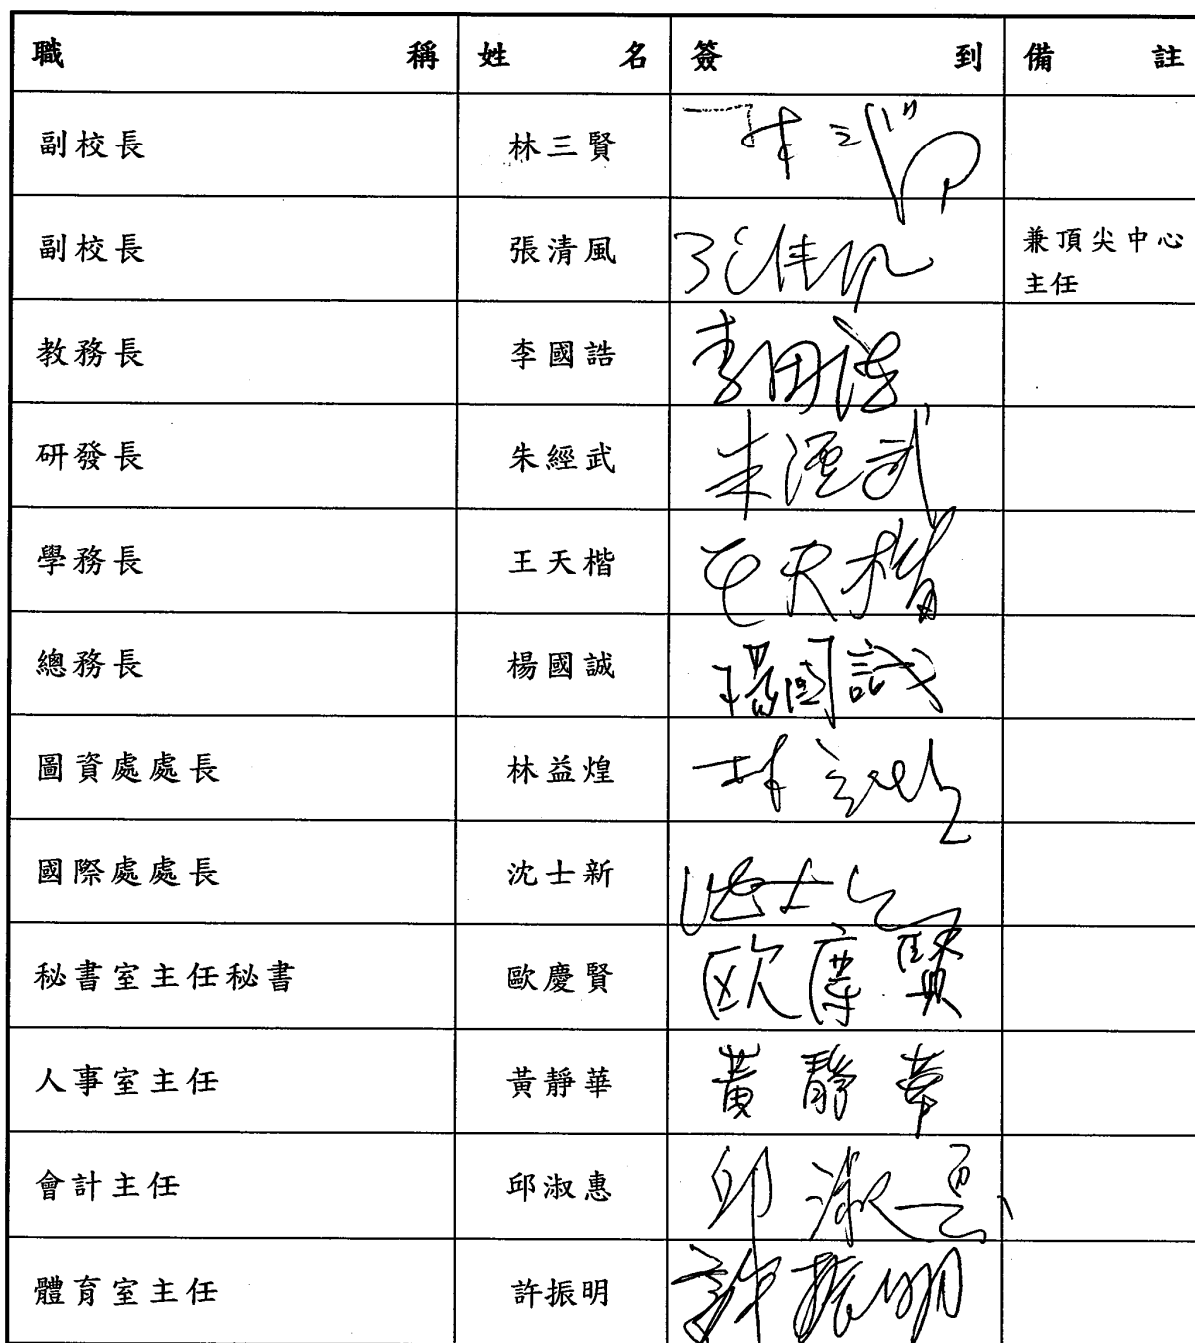 職稱 姓名 簽到 備註
副校長 林三賢 林三賢
副校長 張清風 張清風 兼頂尖中心
主任
教務長 李國誥 李國誥
研發長 朱經武 朱經武
學務長 王天楷 王天楷
總務長 楊國誠 楊國誠
圖資處處長 林益煌 林益煌
國際處處長 沈士新 沈士新
秘書室主任秘書 歐慶賢 欧慶賢
人事室主任 黃靜華 黃靜華
會計主任 邱淑惠 邱淑惠
體育室主任 許振明 許振明